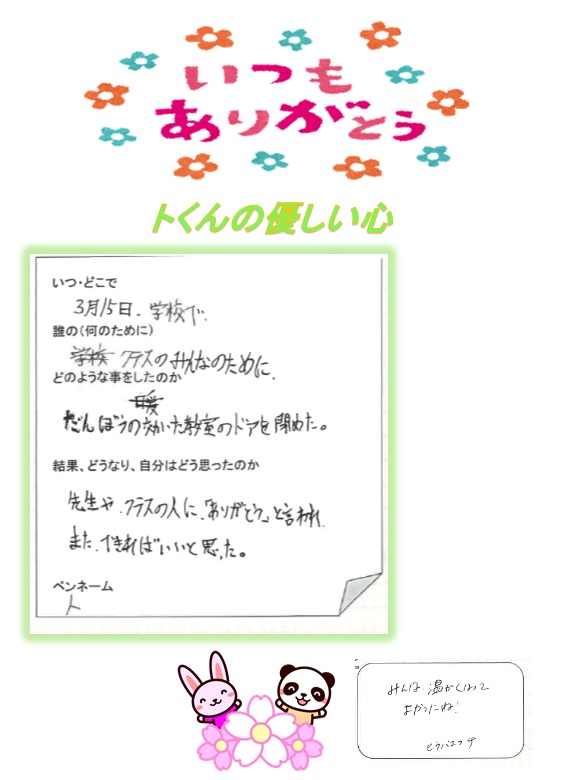 いつも
ありがとう
トくんの優しい心
いつ・どこで
3月15日、学校で、
誰の(何のために)
クラスのみんなのために、
どのような事をしたのか
だんぼうの効いた教室のドアを閉めた。
結果、どうなり、自分はどう思ったのか
先生や、クラスの人に、「ありがとう」と言われ、
また、できればいいと思った。
ペンネーム
ト
みんな、温かくなって
よかったね!